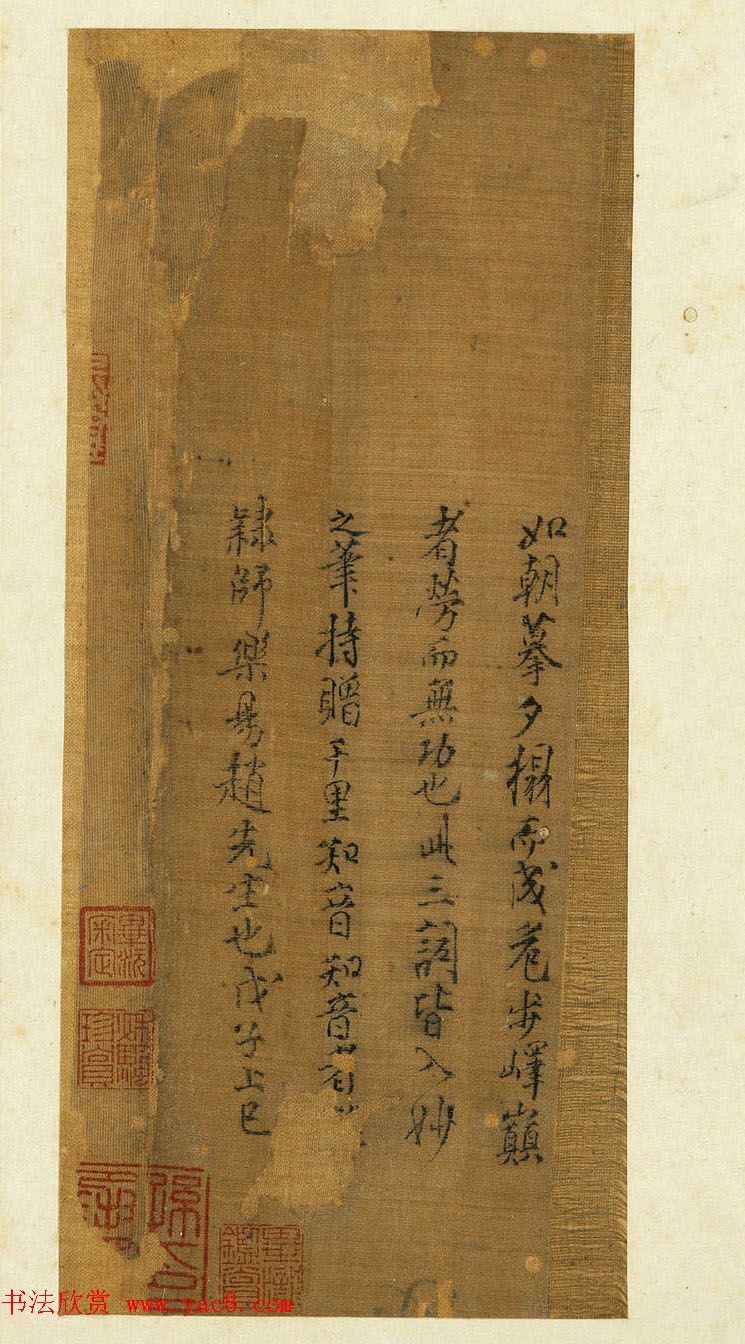 如朝摹夕榻而茂危步嶧巔
者勞而無功也此三詞皆入妙
之筆持贈千里知音知音者
隸師樂易趙先生也戊子上巳
珍賞
鑑賞
书法欣赏 www.yac8.com